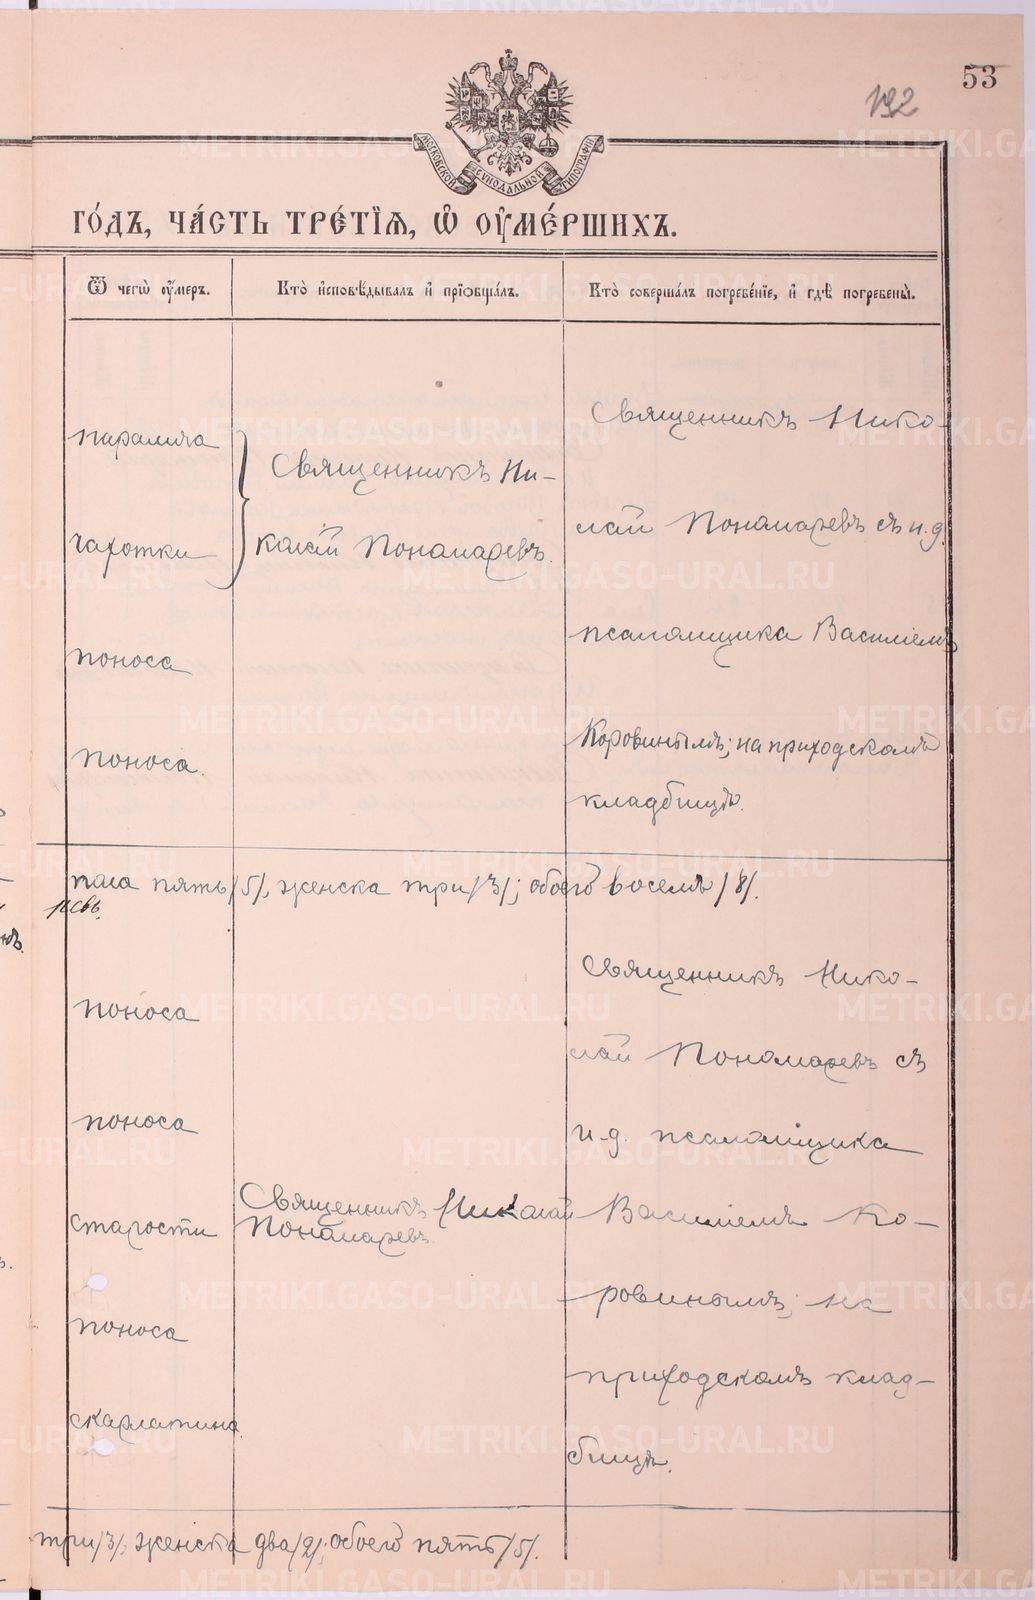 53
192
МОСКОВСКОЙ СУНОДАЛЬНОЙ ТИПОГРАФІИ
ГО́ДЪ, ЧА́СТЬ ТРЕ́ТІѦ, Ѡ҆ ОУ҆МЕ́РШИХЪ.
Ѿ чегѡ̀ оу҆́меръ.
Кто̀ и҆сповѣ́дывалъ и҆ прїѻбща́лъ.
Кто̀ соверша́лъ погребе́нїе, и҆ гдѣ̀ погребены̀.
паралича
чахотки
поноса
поноса.
Священникъ Ни-
колай Пономаревъ.
Священникъ Нико-
лай Пономаревъ съ и.д.
псаломщика Василіемъ
Коровинымъ; на приходскомъ
кладбищѣ.
пола пять /5/, женска три /3/; обоего восемь /8/.
поноса
поноса
старости
поноса
скарлатина.
Священникъ Николай
Пономаревъ.
Священникъ Нико-
лай Пономаревъ съ
и.д. псаломщика
Василіемъ Ко-
ровинымъ; на
приходскомъ клад-
бищѣ.
три /3/; женска два /2/; обоего пять /5/.
METRIKI.GASO-URAL.RU